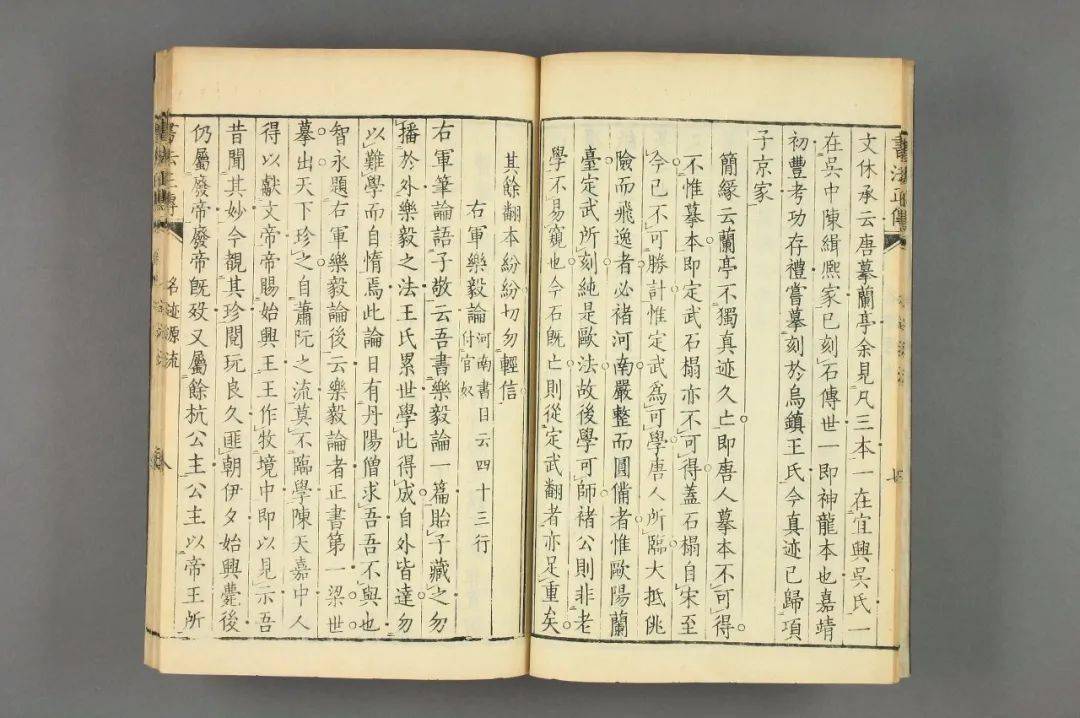 文休承云唐摹蘭亭余見凡三本一在宜興吳氏一
在吳中陳緝熈家已刻石傳世一即神龍本也嘉靖
初豐考功存禮嘗摹刻於烏鎮王氏今真迹已歸項
子京家
簡緣云蘭亭不獨真迹久亡即唐人摹本不可得
不惟摹本即定武石榻亦不可得蓋石榻自宋至
今已不可勝計惟定武為可學唐人所臨大抵佻
險而飛逸者必褚河南嚴整而圓備者惟歐陽蘭
臺定武所刻純是歐法故後學可師褚公則非老
學不易窺也今石既亡則從定武翻者亦足重矣
其餘翻本紛紛切勿輕信
右軍樂毅論河南書目云四十三行
付官奴
右軍筆論語子敬云吾書樂毅論一篇貽子藏之勿
播於外樂毅之法王氏累世學此得成自外皆達勿
以難學而自惰焉此論日有丹陽僧求吾吾不與也
智永題右軍樂毅論後云樂毅論者正書第一梁世
摹出天下珍之自蕭阮之流莫不臨學陳天嘉中人
得以獻文帝帝賜始興王王作牧境中即以見示吾
昔聞其妙今覩其珍閱玩良久匪朝伊夕始興薨後
仍屬廢帝廢帝既歿又屬餘杭公主公主以帝王所
書法正傳
名迹源流